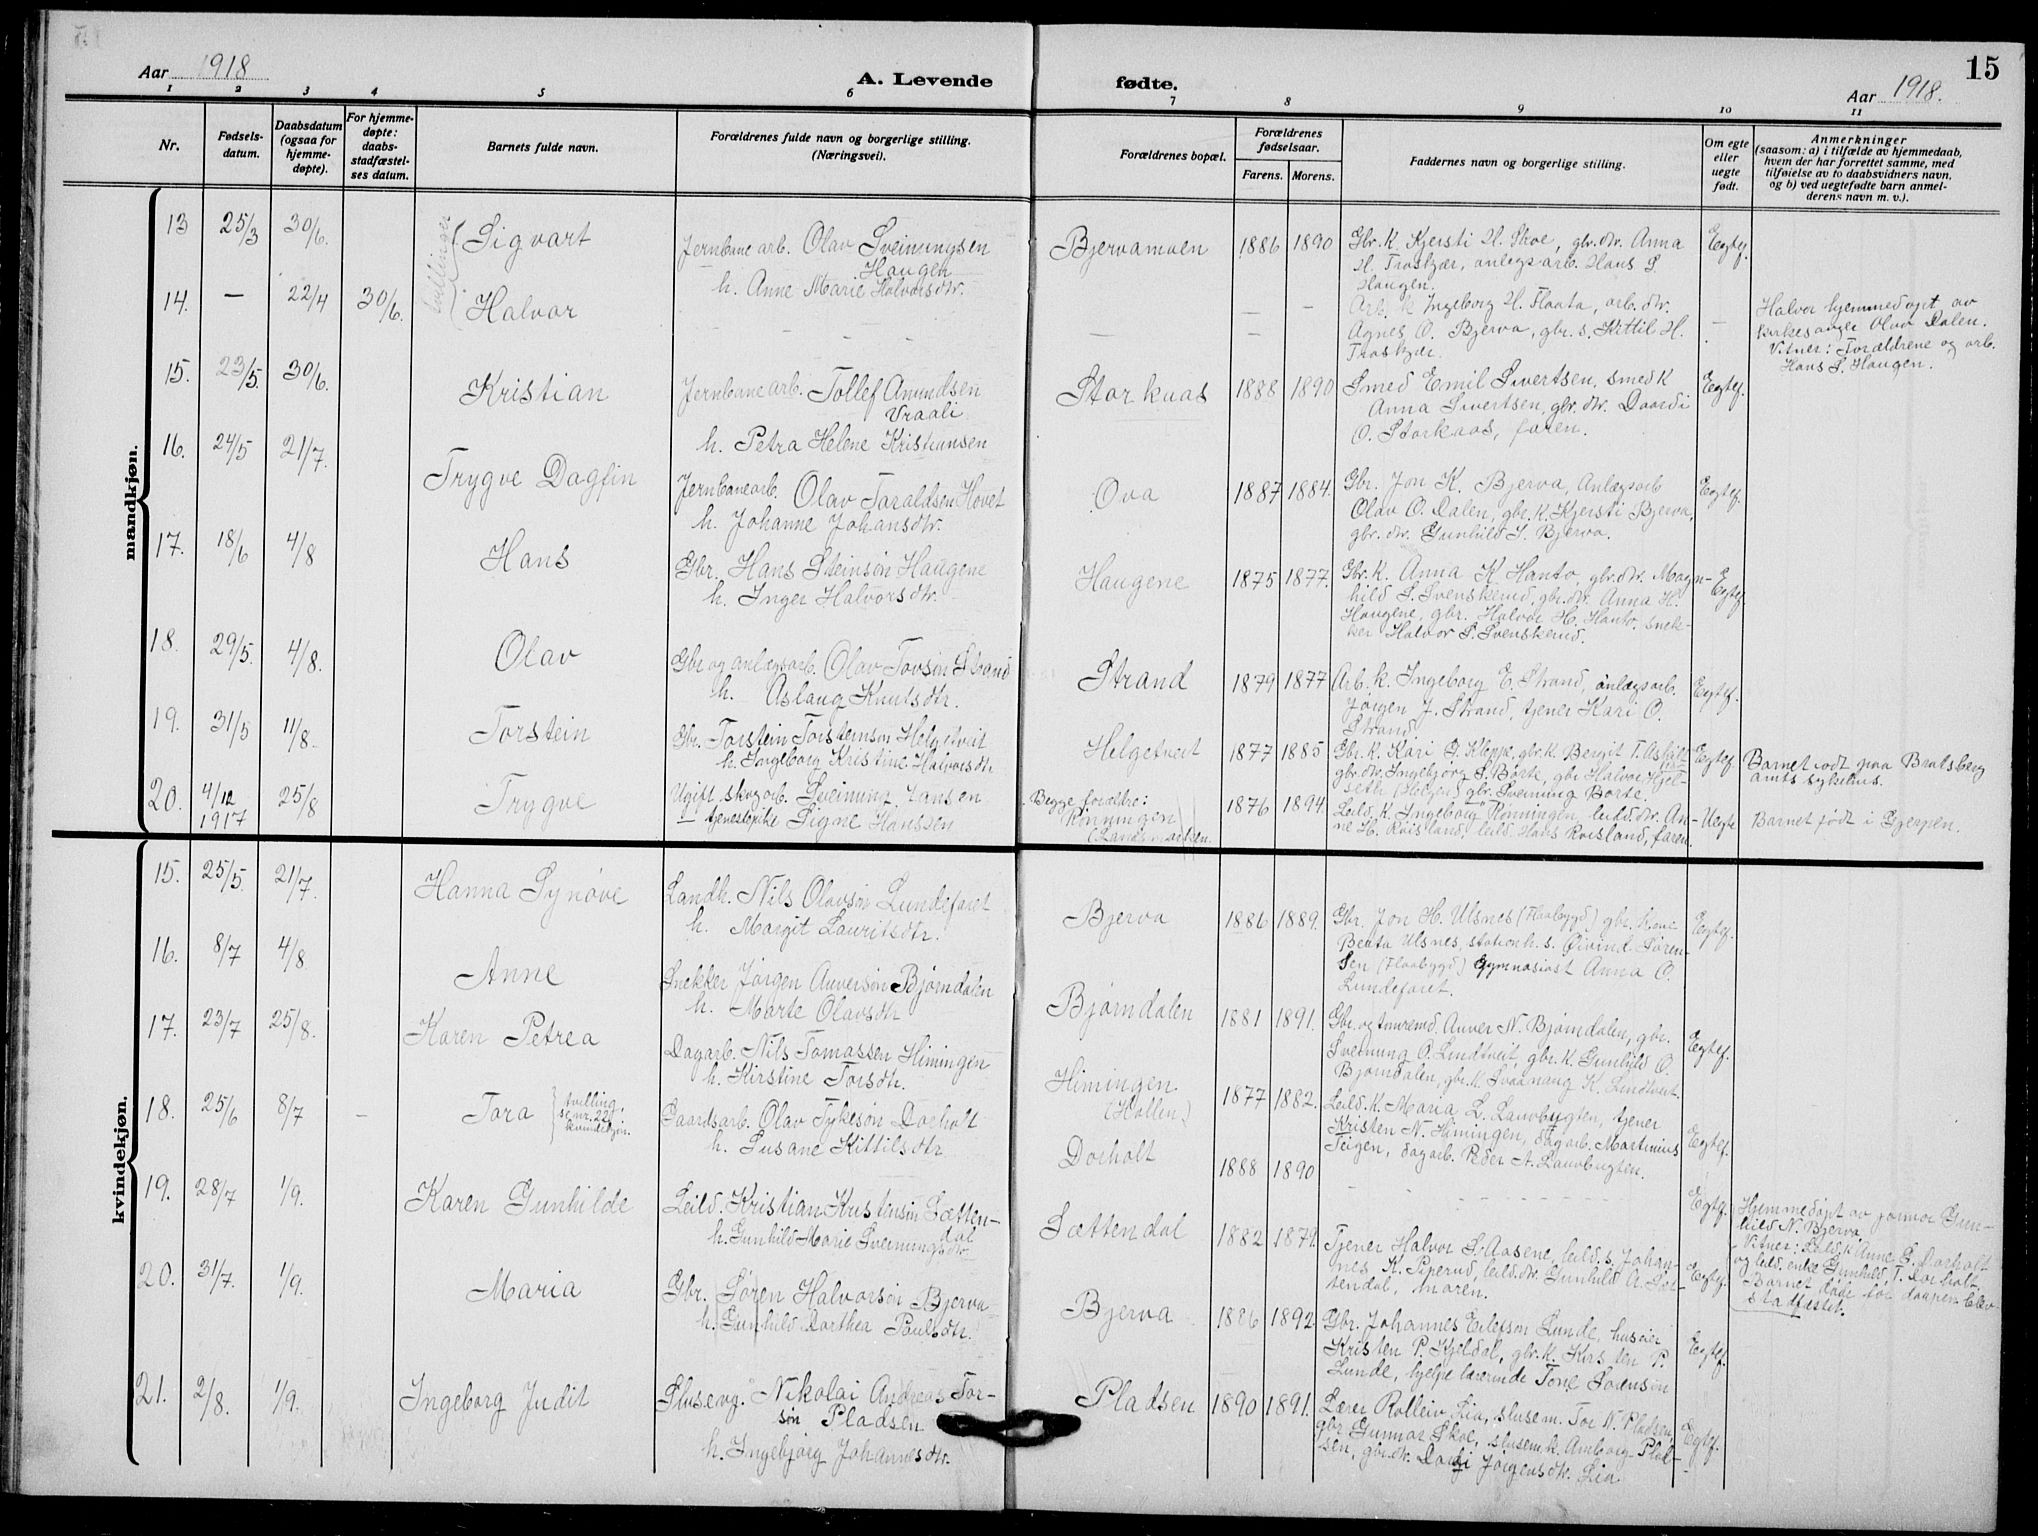 15
Aar 1918
A. Levende fødte.
Aar 1918.
1 2 3 4 5 6 7 8 9 10 11
Nr.
Fødsels-
datum.
Daabsdatum
(ogsaa for
hjemme-
døpte).
For hjemme-
døpte:
daabs-
stadfæstel-
ses datum.
Barnets fulde navn.
Forældrenes fulde navn og borgerlige stilling.
(Næringsvei).
Forældrenes bopæl.
Forældrenes
fødselsaar.
Farens. Morens.
Faddernes navn og borgerlige stilling.
Om egte
eller
uegte
født.
Anmerkninger
(saasom: a) i tilfælde av hjemmedaab,
hvem der har forrettet samme, med
tilføielse av to daabsvidners navn,
og b) ved uegtefødte barn anmel-
derens navn m. v.).
mandkjøn.
13 25/3 30/6. tvillinger Sigvart
Jernbane arb. Olav Sveinungsen
Haugen
h. Anne Marie Halvorsdtr.
Bjervamoen 1886 1890
Gbr. k. Kjersti H. Skoe, gbr. dtr. Anna
H. Traskjær, anlegsarb. Hans S.
Haugen.
Egtef.
14. — 22/4 30/6. Halvor
— — —
Arb. k Ingeborg H. Flaata, arb. dtr.
Agnes O. Bjerva, gbr. s. Kittil H.
Traskjær.
—
Halvor hjemmedøpt av
kirkesanger Olav Dalen.
Vitner: Forældrene og arb.
Hans S. Haugen.
15. 23/5. 30/6. Kristian
Jernbane arb. Tollef Amundsen
Vraali
h. Petra Helene Kristiansen
Storkaas 1888 1890
Smed Emil Sivertsen, smed k
Anna Sivertsen, gbr. dtr. Daardi
O. Storkaas, faren.
Egtef.
16. 24/5 21/7. Trygve Dagfin
Jernbanearb. Olav Taraldsen Hovet
h. Johanne Johansdtr.
Ova 1887 1884.
Gbr. Jon K. Bjerva, Anlægsarb
Olav O. Dalen, gbr. k. Kjersti Bjerva,
gbr. dtr. Gunhild S. Bjerva.
Egtef.
17. 18/6 4/8 Hans
Gbr. Hans Steinsøn Haugene
h. Inger Halvorsdtr.
Haugene 1875 1877.
Gbr. k. Anna K. Hanto, gbr. dtr. Magn-
hild S. Svenskerud, gbr. dtr. Anna H.
Haugene, gbr. Halvor H. Hanto, snek-
ker Halvor S. Svenskerud.
Egtef.
18. 29/5. 4/8. Olav
Gbr og anlægsarb. Olav Tovsøn Strand
h. Aslaug Knutsdtr.
Strand 1879 1877
Arb. k. Ingeborg E. Strand, anlægsarb.
Jørgen J. Strand, tjener Kari O.
Strand.
Egtef.
19. 31/5 11/8. Torstein
Gbr. Torstein Torsteinsøn Helgetveit
h. Ingeborg Kristine Halvorsdtr.
Helgetveit 1877 1885
Gbr. k. Kari Kleppe, gbr. k. Bergit T.
gbr. dtr. Ingebjørg S. Børte, gbr Halvor
gbr. Sveinung Børte.
Egtef.
Barnet født paa Bratsberg
amts sykehus.
20. 4/12 1917 25/8 Trygve
Ugift skogarb. Sveinung Jansen
— tjenestepike Signe Hanssen
Begge forældre:
Rønningen
1876 1894.
Leild. k. Ingeborg Rønningen, leild. dtr. An-
ne H. Roisland, leild. Hans Roisland, faren.
Uegte
Barnet født i Gjerpen.
kvindekjøn.
15. 25/5. 21/7. Hanna Synøve
Landh. Nils Olavsøn Lundefaret
h. Margit Lauritsdtr.
Bjerva 1886 1889.
Gbr. Jon H. Ulsnes (Flaabygd) gbr. kone
Beata Ulsnes, stationh. s. Øivind Søren-
sen (Flaabygd) Gymnasiast Anna O.
Lundefaret.
Egtef.
16. 8/7 4/8. Anne
Snekker Jørgen Anversøn Bjørndalen
h. Marte Olavsdtr
Bjørndalen 1881 1891.
Gbr. og tømremd. Anver N. Bjørndalen, gbr.
Sveinung O. Lindtveit, gbr. k. Gunhild O.
Bjørndalen, gbr. k. Svaanaug K. Lindtveit.
Egtef.
17. 23/7 25/8. Karen Petrea
Dagarb. Nils Tomassen Himingen
h. Kirstine Torsdtr.
Himingen
(Hollen)
1877 1882.
Leild. k. Maria L. Lauvbugten, tjener
Kristen N. Himingen, dagarb. Martinius
Teigen, dagarb. Peder A. Lauvbugten.
Egtef.
18. 25/6 8/7 — Tora
tvilling,
se nr. 22
kvindekjøn.
Gaardsarb. Olav Tykesøn Dorholt
h. Susane Kittilsdtr
Dorholt 1888 1890
Egtef.
Hjemmedøpt av jormor Gun-
hild N. Bjerva
Vitner: Leild. k. Anne G. Dorholt
og leild. enke Gunhild T. Dorholt.
Barnet døde før daapen blev
stadfæstet.
19. 28/7 1/9. Karen Gunhilde
Leild. Kristian Kristensøn Sætten-
dal
h. Gunhild Marie Sveinungsdtr.
Sættendal 1882 1879.
Tjener Halvor S. Aasene, leild. s. Johan-
nes K. Pjerud, leild. dtr. Gunhild A. Sæt-
tendal, moren.
Egtef.
20. 31/7. 1/9. Maria
Gbr. Søren Halvorsøn Bjerva
h. Gunhild Dorthea Paulsdtr.
Bjerva 1886 1892
Gbr. Johannes Eilefsøn Lunde, husøier
Kristen P. Kjeldal, gbr. k. Kirsten P.
Lunde, hjelpelærerinde Tone Sørensøn
Egtef.
21. 2/8. 1/9. Ingeborg Judit
Slusevg. Nikolai Andreas Tor-
søn Pladsen
h. Ingebjørg Johannesdtr.
Pladsen 1890 1891.
Lærer Rolleiv Lia, slusem. Tor N. Pladsen,
gbr. Gunnar Skoe, slusem. k. Amborg Plad-
sen, gbr. dtr. Dordi Jørgensdtr. Lia
Egtef.